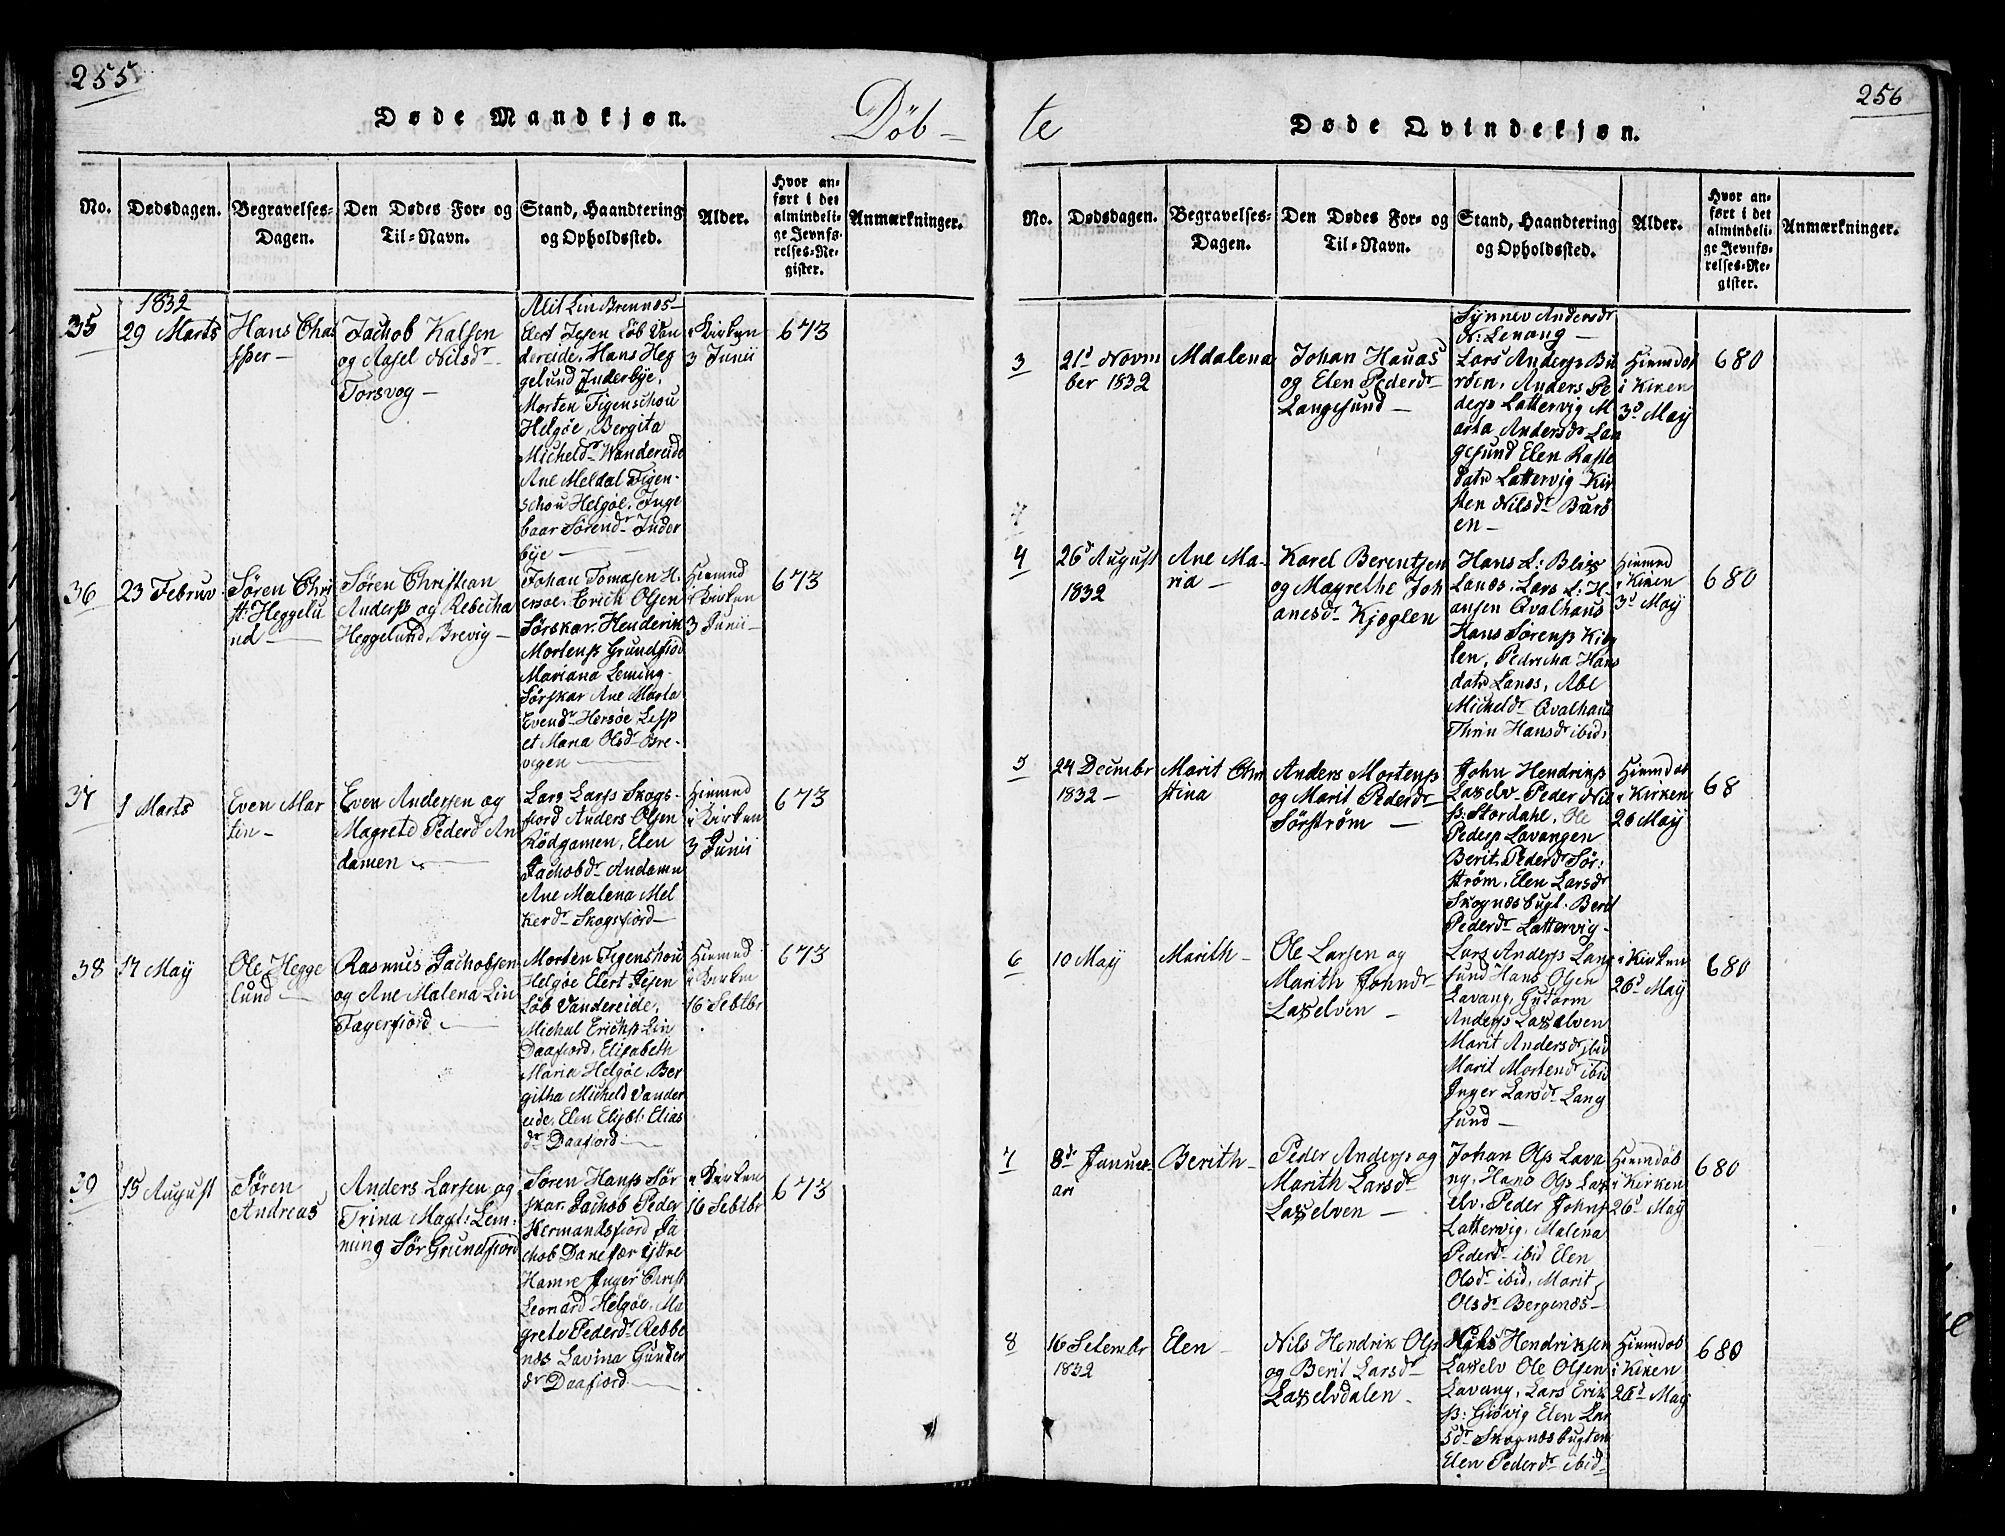 255
Døde Mandkjøn.
Døb-
No.
Dødsdagen.
Begravelses-
Dagen.
Den Dødes For- og
Til-Navn.
Stand, Haandtering
og Opholdssted.
Alder.
Hvor an-
ført i det
almindeli-
ge Jevnfø-
relses-Re-
gister.
Anmærkninger.
1832
35
29 Marts
Hans Chas
per-
Jachob Kalsen
og Aasel Nilsdr
Torsvog-
Alit Lin Brennes-
Elert Jesen Løb Van
dereide, Hans Heg
gelund Inderbye,
Morten Figenschou
Helgøe, Bergita
Micheldr Wandereide
Ane Meldal Figen-
schou Helgøe, Inge
baar Sørendr Inder
bye-
i Kirken
3 Junii
673
36
23 Februv
Søren Chri
st: Heggelu
nd-
Søren Christian
Anders͡s og Rebecha
Heggelund, Brevig-
Johan Tomasen H.
ersøe, Erick Olsen
Sørskar, Henderik
Mortenss Grundfior
Mariana Leming-
Sørskar Ane Marta
Evendr Hersøe
et Maria Olsdr Bre-
vigen-
Hiemd
i Kirken
3 Junii-
673
37
1 Marts
Even Mar
tin-
Even Andersen og
Magrete Pederd An
damen-
Lars Larss Skogs-
fiord Anders Olsen
Rödgamen, Elen
Jachobdr Andamn
Ane Malena Mel
kerdr Skogsfjord-
Hiemd
i Kirken
3 Junii
673
38
17 May
Ole Hegge
lund-
Rasmus Jachobsen
og Ane Malena Lin
Fagerfiord.-
Morten Figenshou
Helgøe Elert Jesen
Løb Vandereide,
Michal Erichss Lin
Daafiord, Elisabeth
Maria Helgøe, Ber
githa Micheld Vander
eide, Elen Elisbt: Elias
dr Daafiord-
Hiemd
i Kirken
16 Sebtbr
673
39
15 August
Søren
Andreas
Anders Larsen og
Trina Magt: Lem:
ming Sør Grundfiord
Søren Hanss Sør
skar, Jachob Peder
Hermandsfiord Ja
chob Danefær Yttre
Hamre Inger Christ
Leonard Helgøe, Ma
grete Pederdr Rebbe
næs Lavina Gunder
dr Daafiord-
i Kirken
16 Sebtbr
673
256
te
Døde Qvindekjøn.
No.
Dødsdagen.
Begravelses-
Dagen.
Den Dødes For- og
Til-Navn.
Stand, Haandtering
og Opholdssted.
Alder.
Hvor an-
ført i det
almindeli-
ge Jevnfø-
relses-Re-
gister.
Anmærkninger.
3
21d Novm
ber 1832
Mdalena
Johan Hauas
og Elen Pederdr
Langesund-
Synnev Andersdr
N: Lenang-
Lars Anderss Bu
røen, Anders Pe
derss Lattervig M
arta Andersdr Lan
gesund Elen Kaste
datr Lattervig Kir
sten Nilsdr Burö
en-
Hiemdøb
i Kiken
3d May
680
4
26d August
1832
Ane Ma-
ria-
Karel Berentsen
og Magrethe Joh
anesdr Kjoglen
Hans L: Blix
Lanes, Lars L: H-
ansen Qvalhaus
Hans Sørenss Kiog
len, Pedricha Hans
datr Lanes, Abel
Micheldr Qvalhaus
Thrin Hansdr ibid,
Hiemd
i Kiken
3d May
680
5
24 Decmbr
1832-
Marit Chri
stina
Anders Mortenss
og Marit Pederdr
Sørstrøm-
John Hendrikss
Laxelv- Peder Nil
ss: Stordahl, Ole
Pederss Lavangen
Berit Pederdr Sør:
strøm, Elen Larsdr
Skognæsbugt. Berit
Pederdr Lattervig-
Hiemdøb
i Kirken
26 May
68
6
10 May
Marith-
Ole Larsen og
Marith Johndr
Laxelven-
Lars Anderss Lang
sund Hans Olsen
Lavang, Gutorm
Anderss Laxelven
Marit Andersdr ibid
Marit Mortendr ibid
Inger Larsdr Lang
sund-
i Kirken
26d May
680
7
8d Janu-
ari
Berith-
Peder Anderss og
Marith Larsdr
Laxelven-
Johan Olss Lava
ng, Hans Olss Lax
elv- Peder Johns
Lattervig, Malena
Pederdr ibid Elen
Olsdr ibid, Marit
Olsdr Bergenæs-
Hiemdøb
i Kirken
26d May
680
8
16 Setembr
1832
Elen-
Nils Hendrik Olss
og Berit Larsdr
Laxelvdalen-
Hendriksen
Laxelv Ole Olsen
Lavang, Lars Erik
ss: Giøvig Elen Lar
sdr Skognæsbugten
Elen Pederdr ibid-
Hiemdøb
i Kiken
26d May
680